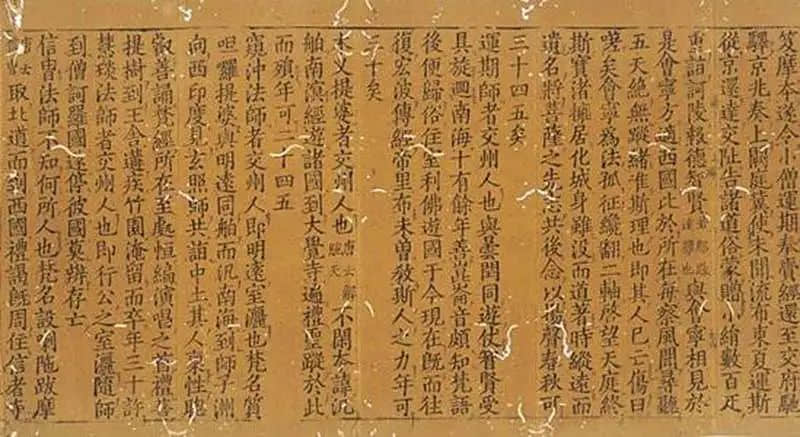 笈摩本遂令小僧運期奉賫經還至交府馳
驛京兆奏上闕庭冀使未聞流布東夏運斯
從京還達交阯告諸道俗蒙贈小絹數百疋
重詣訶陵報德智賢與會寧相見於
是會寧方適西國比於所在每察風聞尋聽
五天絶無蹤緒准斯理也即其人已亡傷曰
嗟矣會寧為法孤征纔翻二軸啓望天庭終
斯寶渚權居化城身雖沒而道著時縱遠而
遺名將菩薩之先志共後念以揚聲春秋可
三十四五矣
運期師者交州人也與曇閏同遊仗智賢受
具旋迴南海十有餘年善崑崙音頗知梵語
後便歸俗住至利佛遊國于今現在既而往
復宏波傳經帝里布未曽教斯人之力年可
三十矣
木叉提婆者交州人也唐云解脫天不閑本諱汎
舶南溟經遊諸國到大覺寺遍禮聖蹤於此
而殞年可二十四五
窺沖法師者交州人即明遠室灑也梵名質
呾囉提婆與明遠同舶而汎南海到師子洲
向西印度見玄照師共詣中土其人稟性聰
叡善誦梵經所在至處恒編演唱之首禮菩
提樹到王舍遘疾竹園淹留而卒年三十許
慧琰法師者交州人也即行公之室灑隨師
到僧訶羅國遂停彼國莫辨存亡
信胄法師不知何所人也梵名設喇陁跋摩
取北道而到西國禮謁既周住信者寺